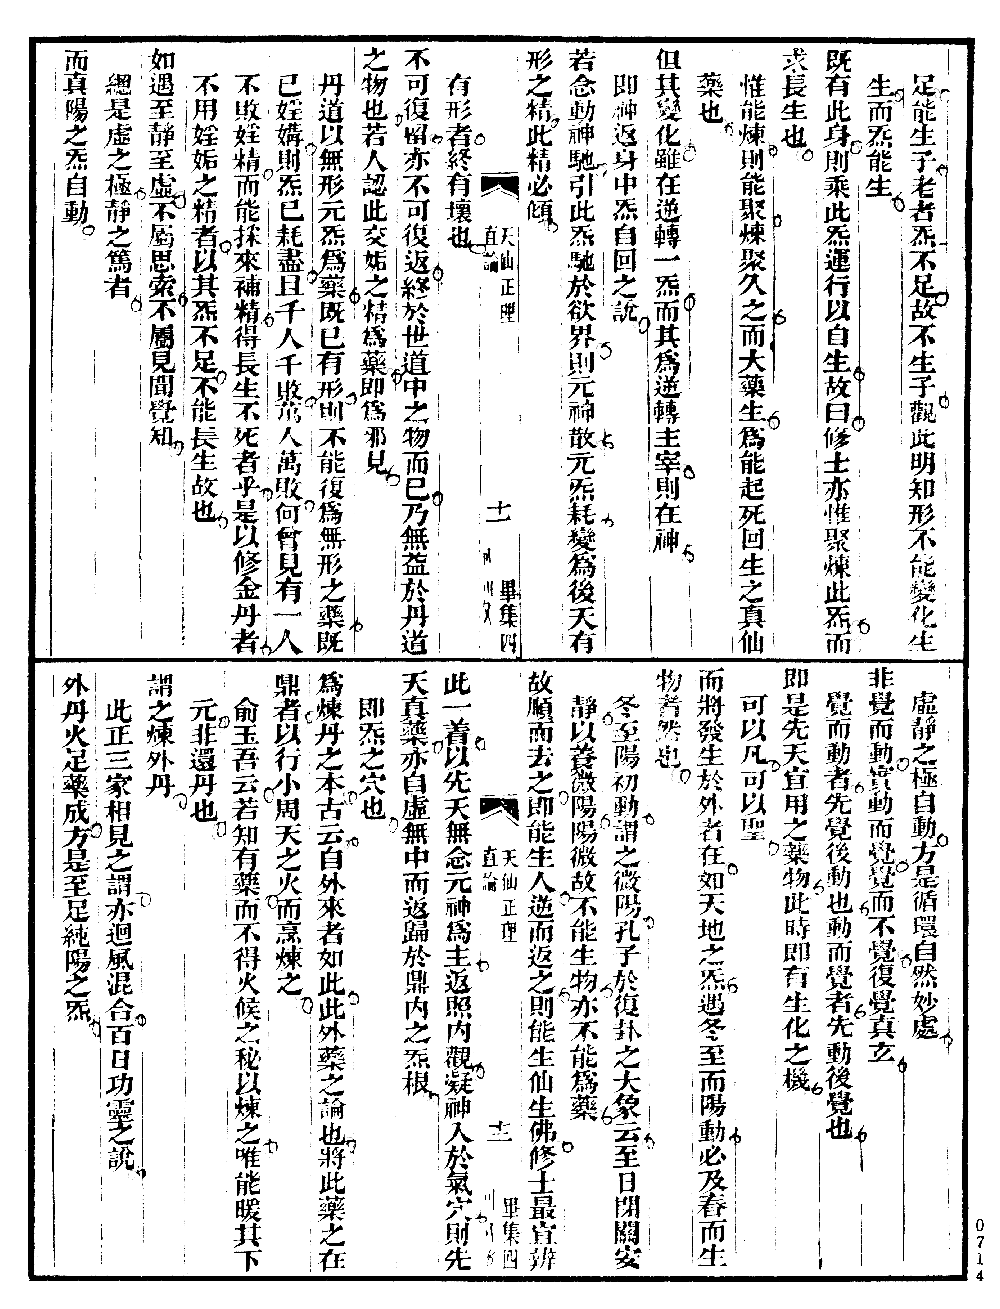 足能生子老者炁不足故不生子觀此明知形不能變化生
生而炁能生
既有此身則乘此炁運行以自生故曰修士亦惟聚煉此炁而
求長生也
惟能煉則能聚煉聚久之而大藥生爲能起死回生之真仙
藥也
但其變化雖在逆轉一炁而其爲逆轉主宰則在神
即神返身中炁自回之說
若念動神馳引此炁馳於欲界則元神散元炁耗變爲後天有
形之精此精必傾
天仙正理
直論
十一
畢集四
有形者終有壞也
不可復留亦不可復返終於世道中之物而已乃無益於丹道
之物也若人認此交姤之精爲藥即爲邪見
丹道以無形元炁爲藥既已有形則不能復爲無形之藥既
已婬媾則炁已耗盡且千人千敗萬人萬敗何曾見有一人
不敗婬精而能採來補精得長生不死者乎是以修金丹者
不用婬姤之精者以其炁不足不能長生故也
如遇至靜至虛不屬思索不屬見聞覺知
總是虛之極靜之篤者
而真陽之炁自動
虛靜之極自動方是循環自然妙處
非覺而動實動而覺覺而不覺復覺真玄
覺而動者先覺後動也動而覺者先動後覺也
即是先天宜用之藥物此時即有生化之機
可以凡可以聖
而將發生於外者在如天地之炁遇冬至而陽動必及春而生
物者然也
冬至陽初動謂之微陽孔子於復卦之大象云至日閉關安
靜以養微陽陽微故不能生物亦不能爲藥
故順而去之即能生人逆而返之則能生仙生佛修士最宜辨
天仙正理
直論
十二
畢集四
此一着以先天無念元神爲主返照內觀凝神入於氣穴則先
天真藥亦自虛無中而返歸於鼎內之炁根
即炁之穴也
爲煉丹之本古云自外來者如此此外藥之論也將此藥之在
鼎者以行小周天之火而烹煉之
俞玉吾云若知有藥而不得火候之秘以煉之唯能暖其下
元非還丹也
謂之煉外丹
此正三家相見之謂亦迴風混合百日功靈之說
外丹火足藥成方是至足純陽之炁
0714